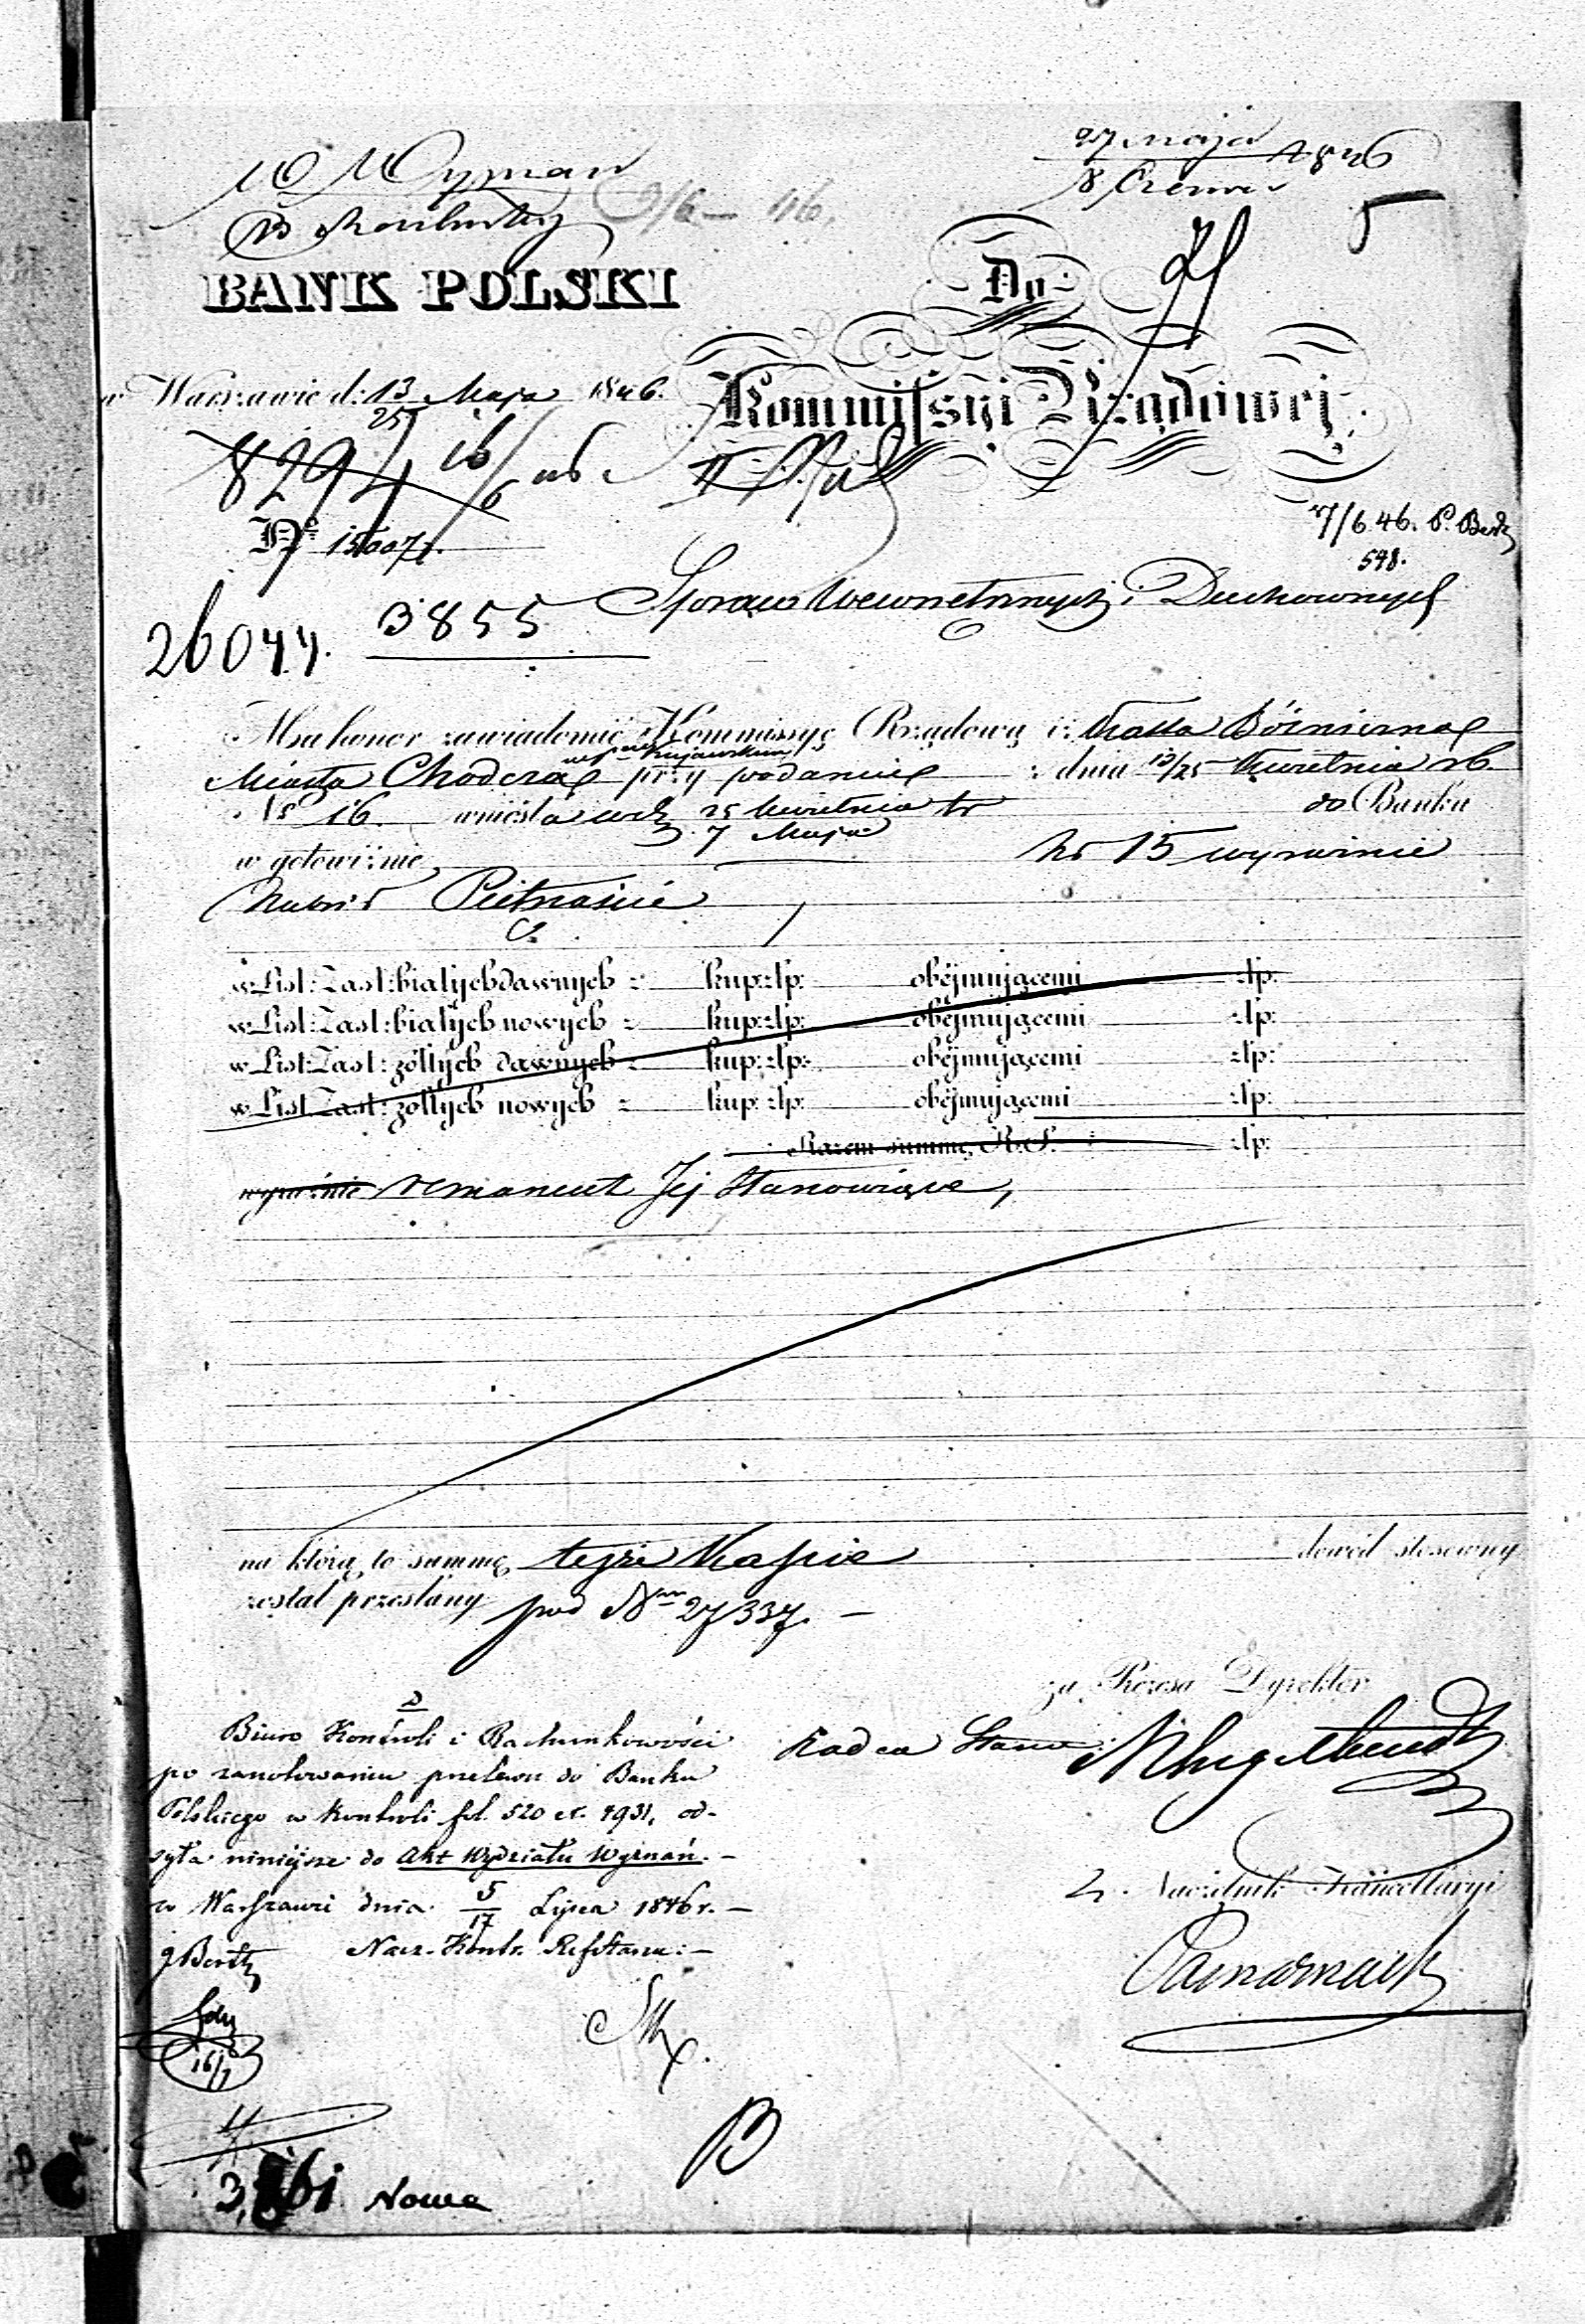 W Wyznań
27 maja
8 Czerwca 1846
9/6 – 46.
5
BANK POLSKI
Do
w Warszawie d: 13/25 Maja 1846.
Kommissyi Rządowej
8294 16/6
7/6 46. P. Bertz
548.
Nº 15007.
Spraw Wewnętrznych i Duchownych
3855
26044.
Ma honor zawiadomić Kommissyę Rządową iż Kassa Bóżniczna
Kujawskim
Miasta Chodcza przy podaniu z dnia 13/25 Kwietnia rb.
Nr 16. wniosła wd. 25 Kwietnia tr do Banku
7 Maja
w gotowiźnie rs 15 wyraźnie
Rubsr Pietnaście
w List: Zast: białych dawnych kup: złp: obejmującemi złp:
w List: Zast: białych nowych kup: złp: obejmującemi złp:
w List: Zast: żółtych dawnych kup: złp: obejmującemi złp:
w List: Zast: żółtych nowych kup: złp: obejmującemi złp:
Razem summę R. S. złp:
wyraźnie remanent Jej stanowiące,
na którą to summę tejże Kassie dowód stosowny
został przesłany pod Nrm 27337. –
za Prezesa Dyrektor
Radca Stanu
Biuro Kontroli i Rachunkowości
po zanotowaniu przelewu do Banku
Polskiego w Kontroli fol. 520 et. 1931, od-
syła niniejsze do Akt Wydziału Wyznań. –
w Warszawie dnia 5/17 Lipca 1846 r. –
Naczelnik Kancellaryi
Bertz Nacz. Kontr. Ref. Stanu: –
16/7
B
Nowa